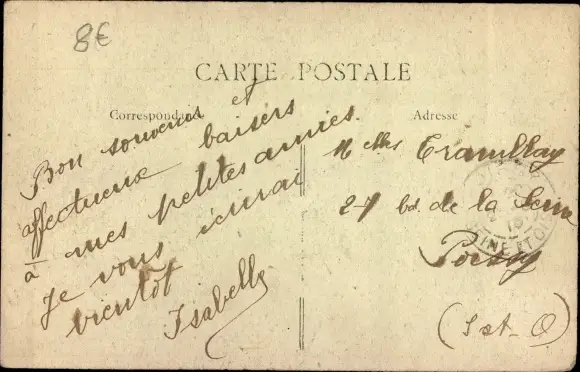 8€
CARTE POSTALE
Correspondance
Adresse
Bon souvenir et
affectueux baisers
à mes petites amies.
Je vous écrirai
bientôt
Isabelle
Melles Tramblay
27 bd. de la Seine
Poissy
(S et-O)